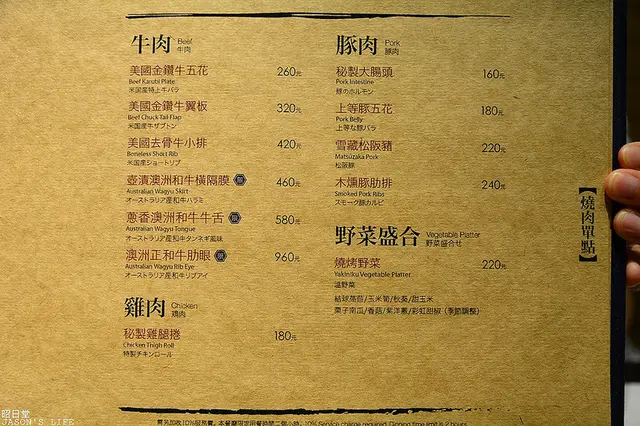 牛肉 Beef
牛肉
美國金鑽牛五花 260元
Beef Karubi Plate
米国産特上牛バラ
美國金鑽牛翼板 320元
Beef Chuck Tail Flap
米国産牛ザブトン
美國去骨牛小排 420元
Boneless Short Rib
米国産ショートリブ
壺漬澳洲和牛橫隔膜 460元
Australian Wagyu Skirt
オーストラリア産和牛ハラミ
蔥香澳洲和牛牛舌 580元
Australian Wagyu Tongue
オーストラリア産和牛タンネギ風味
澳洲正和牛肋眼 960元
Australian Wagyu Rib Eye
オーストラリア産和牛リブアイ
雞肉 Chicken
鶏肉
秘製雞腿捲 180元
Chicken Thigh Roll
特製チキンロール
豚肉 Pork
豚肉
秘製大腸頭 160元
Pork Intestine
豚のホルモン
上等豚五花 180元
Pork Belly
上等な豚バラ
雪藏松阪豬 220元
Matsuzaka Pork
松阪豚
木燻豚肋排 240元
Smoked Pork Ribs
スモーク豚カルビ
野菜盛合 Vegetable Platter
野菜盛合せ
燒烤野菜 220元
Yakiniku Vegetable Platter
温野菜
結球萵苣/玉米筍/秋葵/甜玉米
栗子南瓜/香菇/紫洋蔥/彩虹甜椒（季節調整）
【燒肉單點】
需另加收10%服務費，本餐廳限定用餐時間二個小時。10% Service charge required. Dining time limit is 2 hours.
昭日堂
JASON'S LIFE